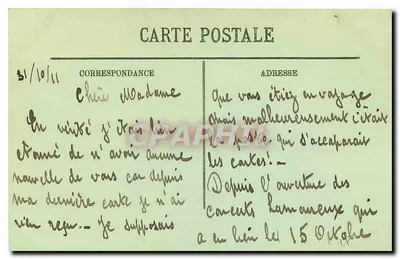 CARTE POSTALE
31/10/11
CORRESPONDANCE
ADRESSE
Chère Madame
En vérité j'étais bien
étonné de n'avoir aucune
nouvelle de vous car depuis
ma dernière carte je n'ai
rien reçu. - Je supposais
que vous étiez en voyage
mais malheureusement c'était
la poste qui s'accaparait
les cartes! -
Depuis l'ouverture des
concerts Lamoureux qui
a eu lieu le 15 Octobre